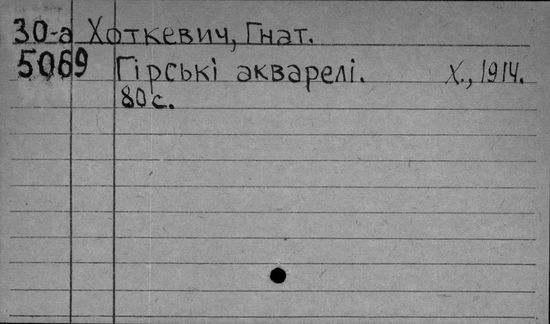 30-а Хоткевич, Гнат.
5069 Гірські акварелі. Х., 1914.
80 с.